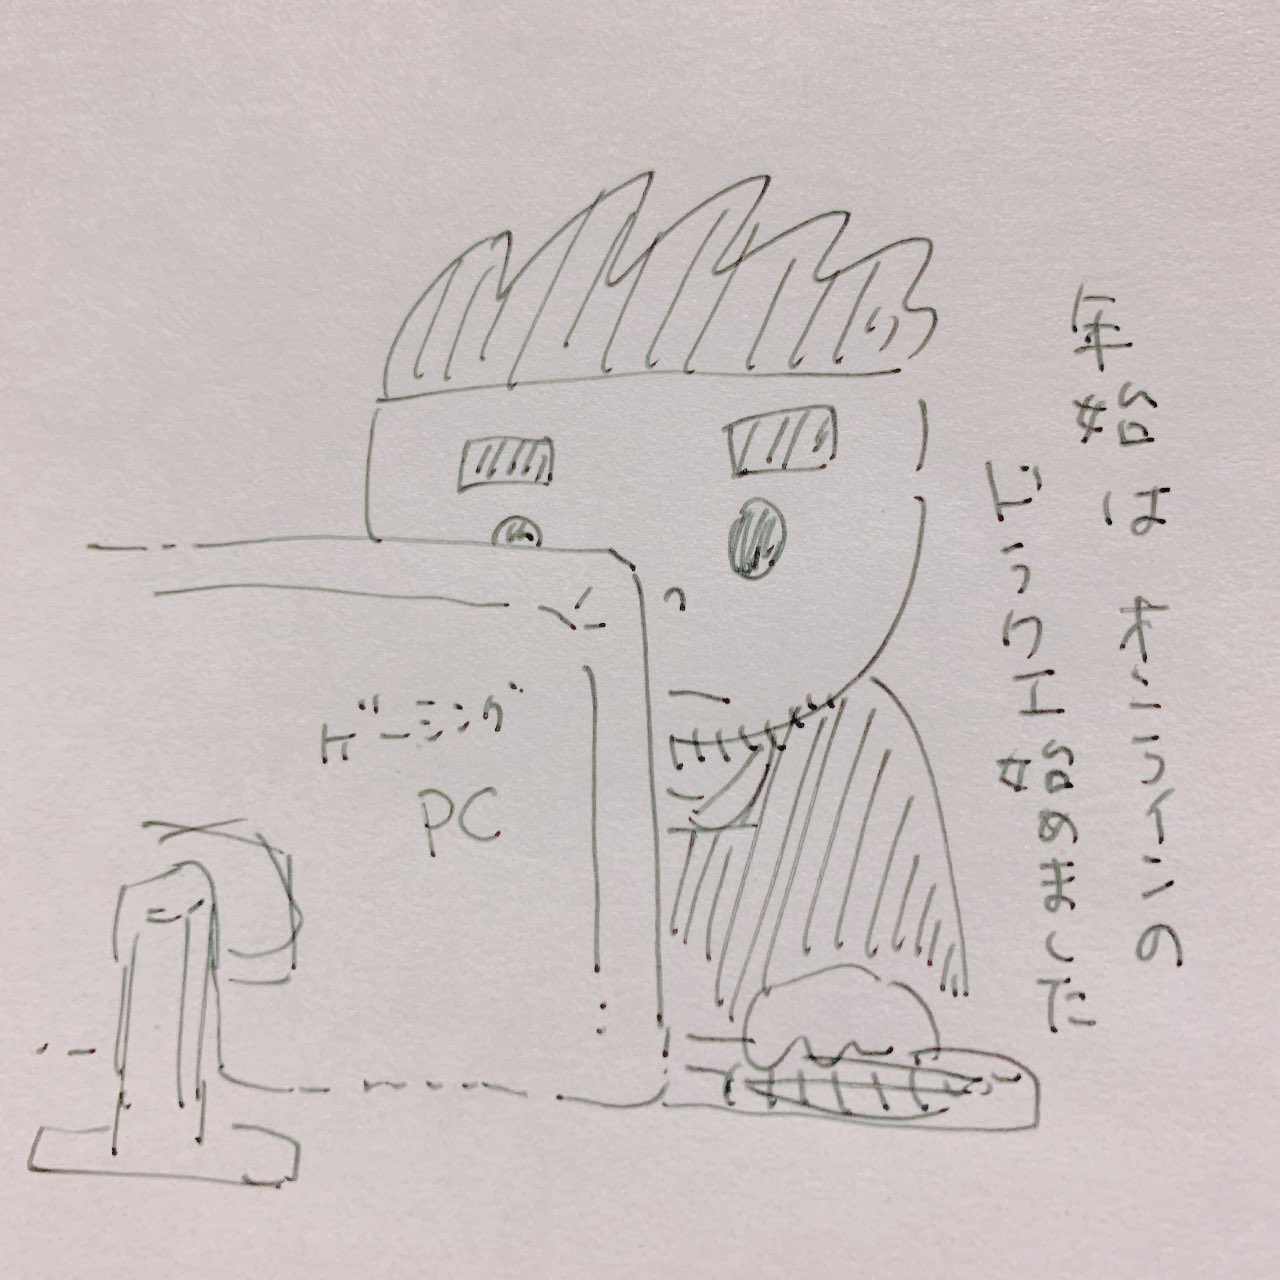 年始はオンラインの
ドラクエ始めました
ゲーミング
PC